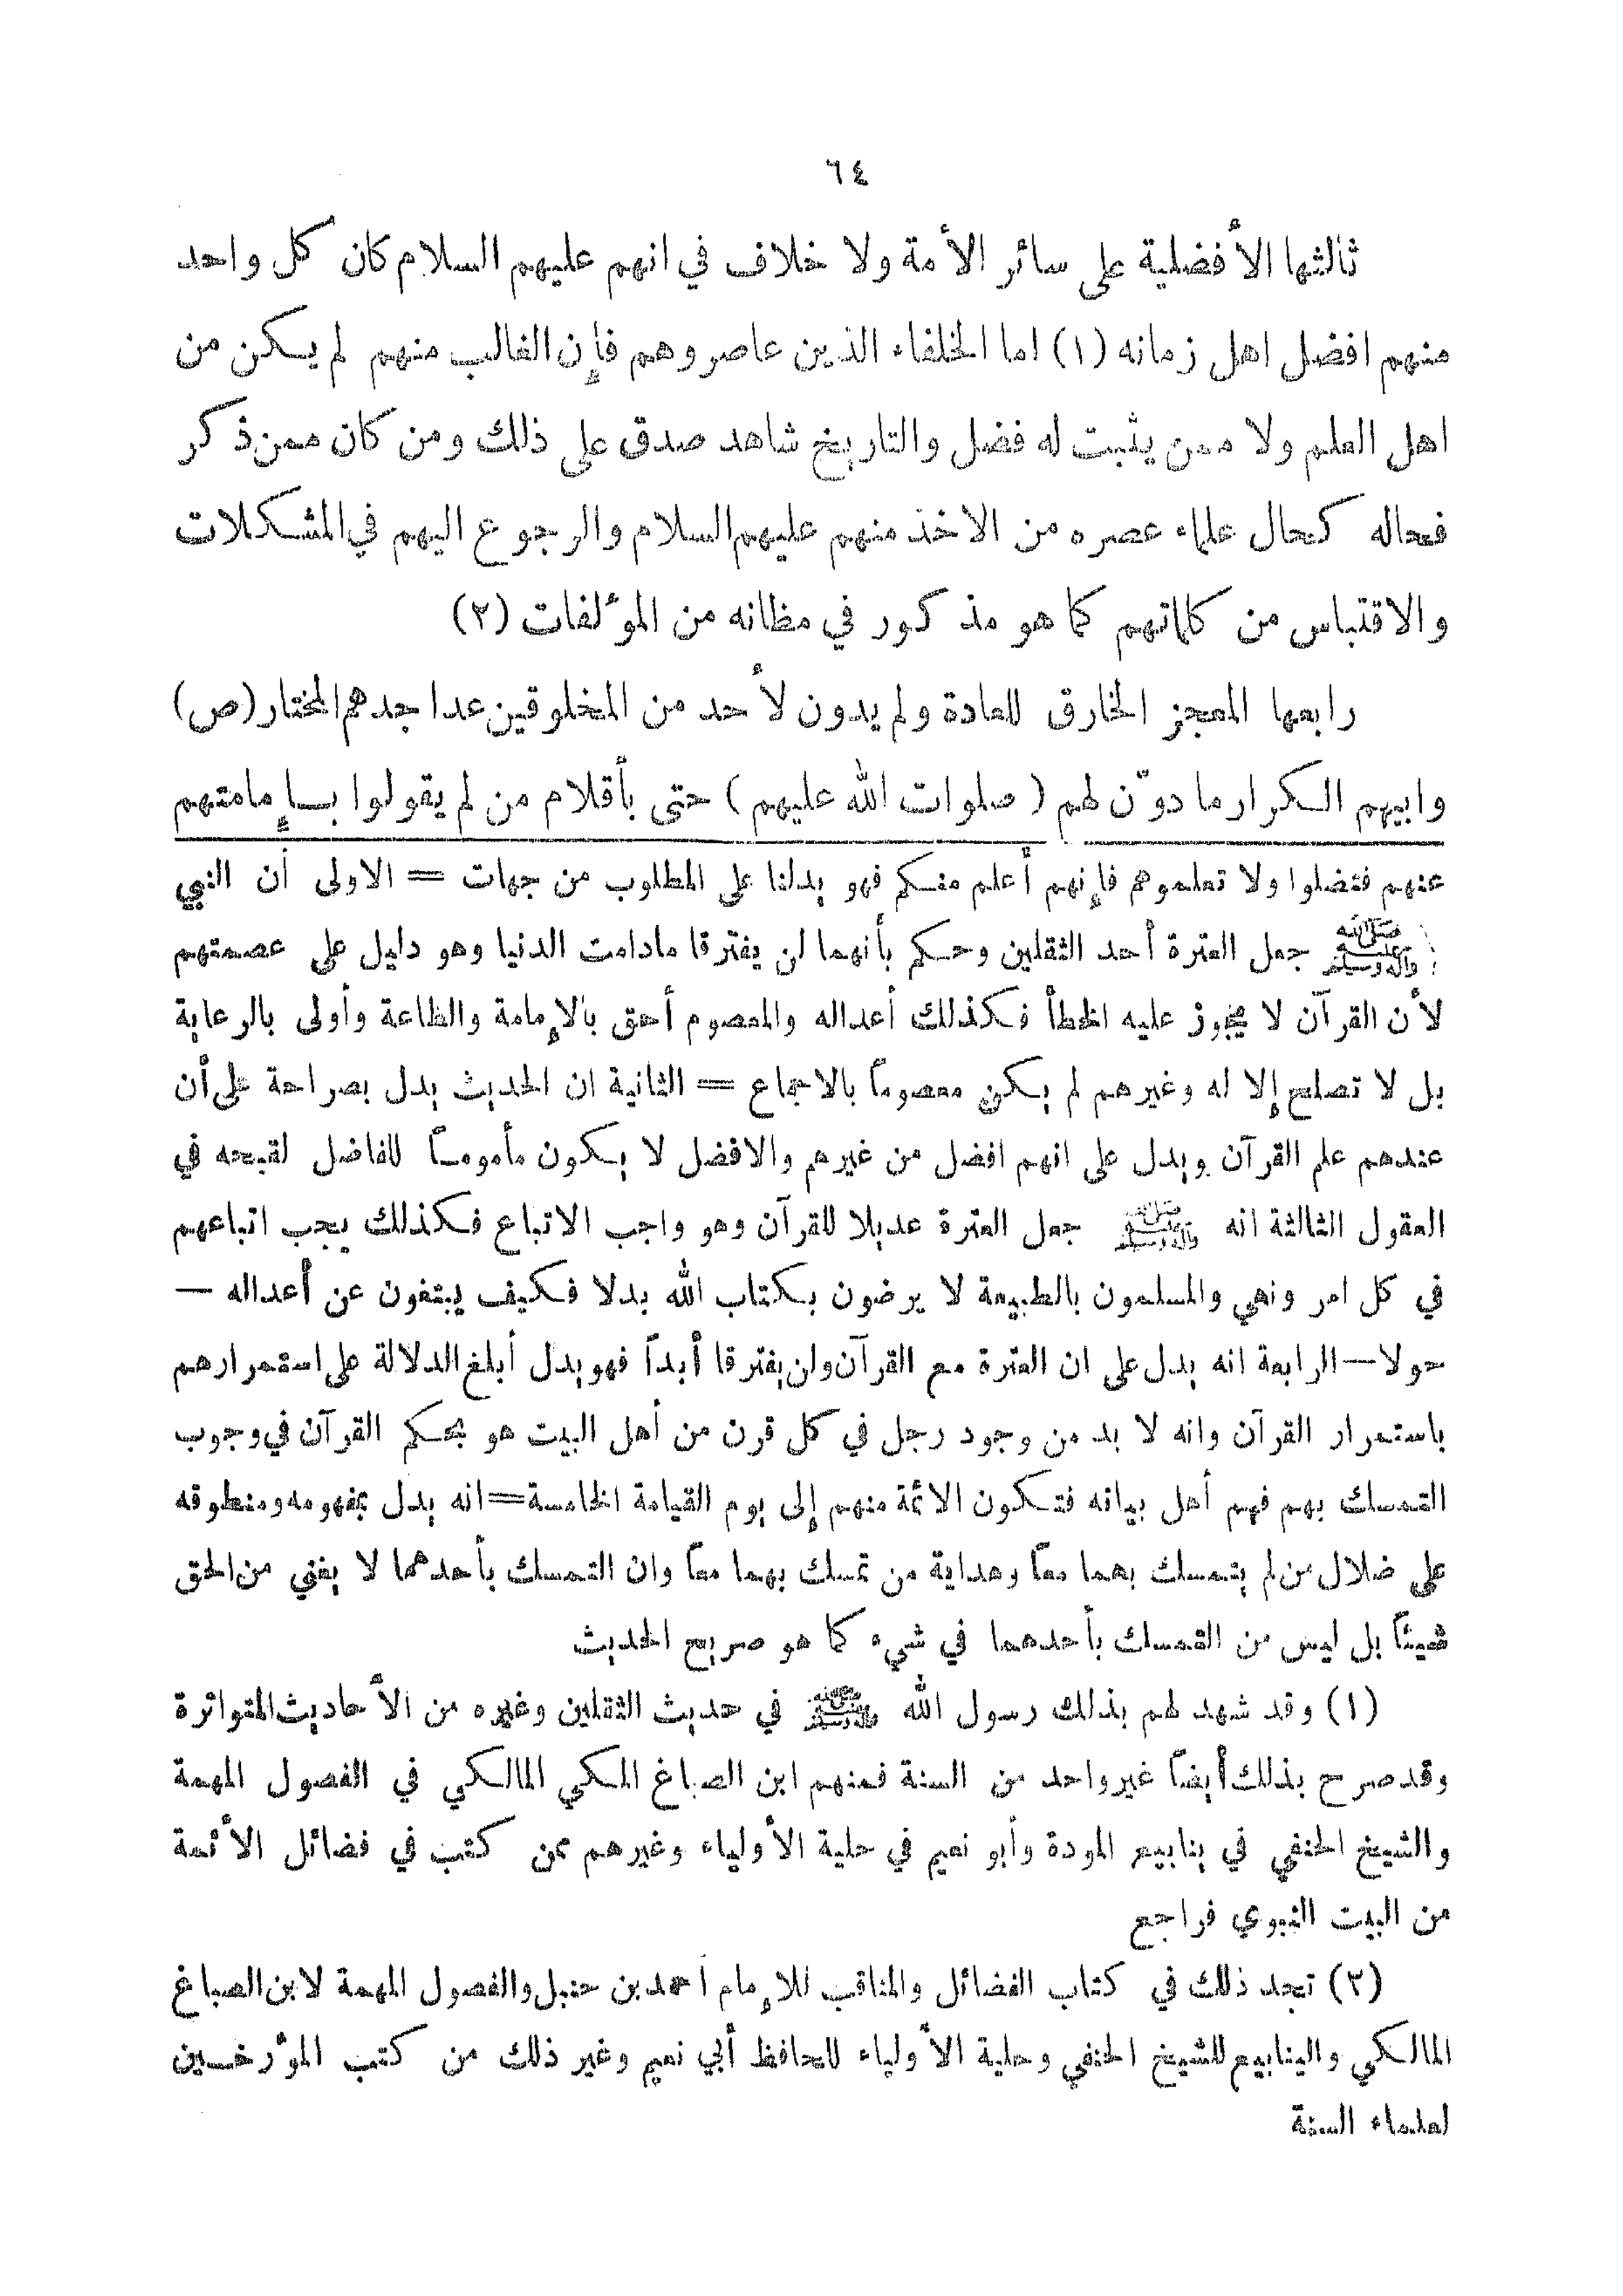 ٦٤
ثالثها الأفضلية على سائر الأمة ولا خلاف في انهم عليهم السلام كان كل واحد
منهم افضل اهل زمانه (١) اما الخلفاء الذين عاصروهم فإن الغالب منهم لم يكن من
اهل العلم ولا ممن يثبت له فضل والتاريخ شاهد صدق على ذلك ومن كان ممن ذكر
فحاله كحال علماء عصره من الاخذ منهم عليهم السلام والرجوع اليهم في المشكلات
والاقتباس من كلماتهم كما هو مذكور في مظانه من المؤلفات (٢)
رابعها المعجز الخارق للعادة ولم يدون لأحد من المخلوقين عدا جدهم المختار (ص)
وابيهم الكرار ما دوّن لهم ( صلوات الله عليهم ) حتى بأقلام من لم يقولوا بإمامتهم
عنهم فتضلوا ولا تعلموهم فإنهم أعلم منكم فهو يدلنا على المطلوب من جهات = الاولى أن النبي
صلى الله عليه وآله وسلم جعل العترة أحد الثقلين وحكم بأنهما لن يفترقا مادامت الدنيا وهو دليل على عصمتهم
لأن القرآن لا يجوز عليه الخطأ فكذلك أعداله والمعصوم أحق بالإمامة والطاعة وأولى بالرعاية
بل لا تصلح إلا له وغيرهم لم يكن معصوماً بالاجماع = الثانية ان الحديث يدل بصراحة على أن
عندهم علم القرآن ويدل على انهم افضل من غيرهم والافضل لا يكون مأموماً للفاضل لقبحه في
العقول الثالثة انه صلى الله عليه وآله وسلم جعل العترة عديلا للقرآن وهو واجب الاتباع فكذلك يجب اتباعهم
في كل امر ونهي والمسلمون بالطبيعة لا يرضون بكتاب الله بدلا فكيف يبتغون عن أعداله —
حولا — الرابعة انه يدل على ان العترة مع القرآن ولن يفترقا أبداً فهو يدل أبلغ الدلالة على استمرارهم
باستمرار القرآن وانه لا بد من وجود رجل في كل قرن من أهل البيت هو بحكم القرآن في وجوب
التمسك بهم فهم أهل بيانه فتكون الائمة منهم إلى يوم القيامة الخامسة = انه يدل بمفهومه ومنطوقه
على ضلال من لم يتمسك بهما معاً وهداية من تمسك بهما معاً وان التمسك بأحدهما لا يغني من الحق
شيئاً بل ليس من التمسك بأحدهما في شيء كما هو صريح الحديث
(١) وقد شهد لهم بذلك رسول الله صلى الله عليه وآله وسلم في حديث الثقلين وغيره من الأحاديث المتواترة
وقد صرح بذلك أيضاً غير واحد من السنة فمنهم ابن الصباغ المكي المالكي في الفصول المهمة
والشيخ الحنفي في ينابيع المودة وأبو نعيم في حلية الأولياء وغيرهم ممن كتب في فضائل الأئمة
من البيت النبوي فراجع
(٢) تجد ذلك في كتاب الفضائل والمناقب للإمام احمد بن حنبل والفصول المهمة لابن الصباغ
المالكي والينابيع للشيخ الحنفي وحلية الأولياء للحافظ أبي نعيم وغير ذلك من كتب المؤرخين
لعلماء السنة